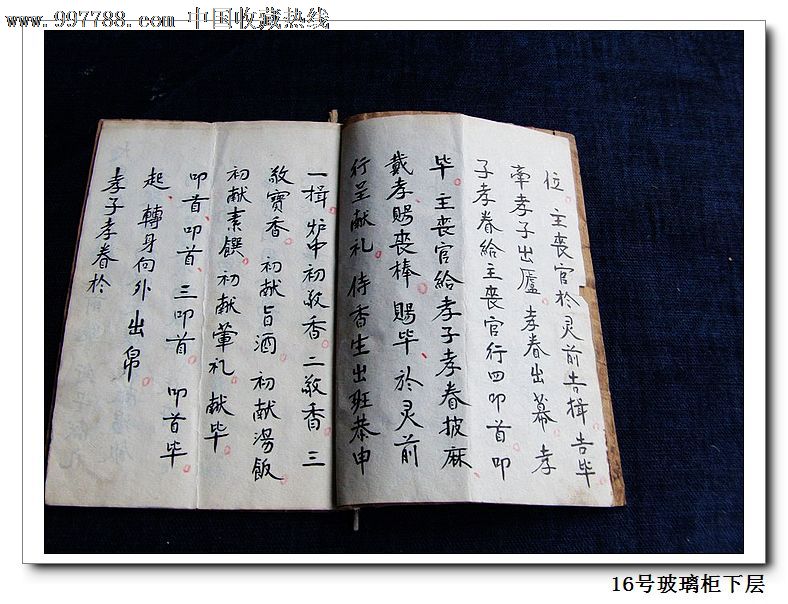 www.997788.com 中国收藏热线
位 主喪官於灵前告揖告毕
牵孝子出廬 孝眷出幕 孝
子孝眷给主喪官行四叩首 叩
毕 主喪官给孝子孝眷披麻
戴孝賜喪棒 賜毕 於灵前
行呈献礼 侍香生出班恭申
一揖 炉中初敬香 二敬香 三
敬寶香 初献旨酒 初献湯飯
初献素饌 初献葷礼 献毕
叩首 叩首 三叩首 叩首毕
起 轉身向外出帛
孝子孝眷於
16号玻璃柜下层